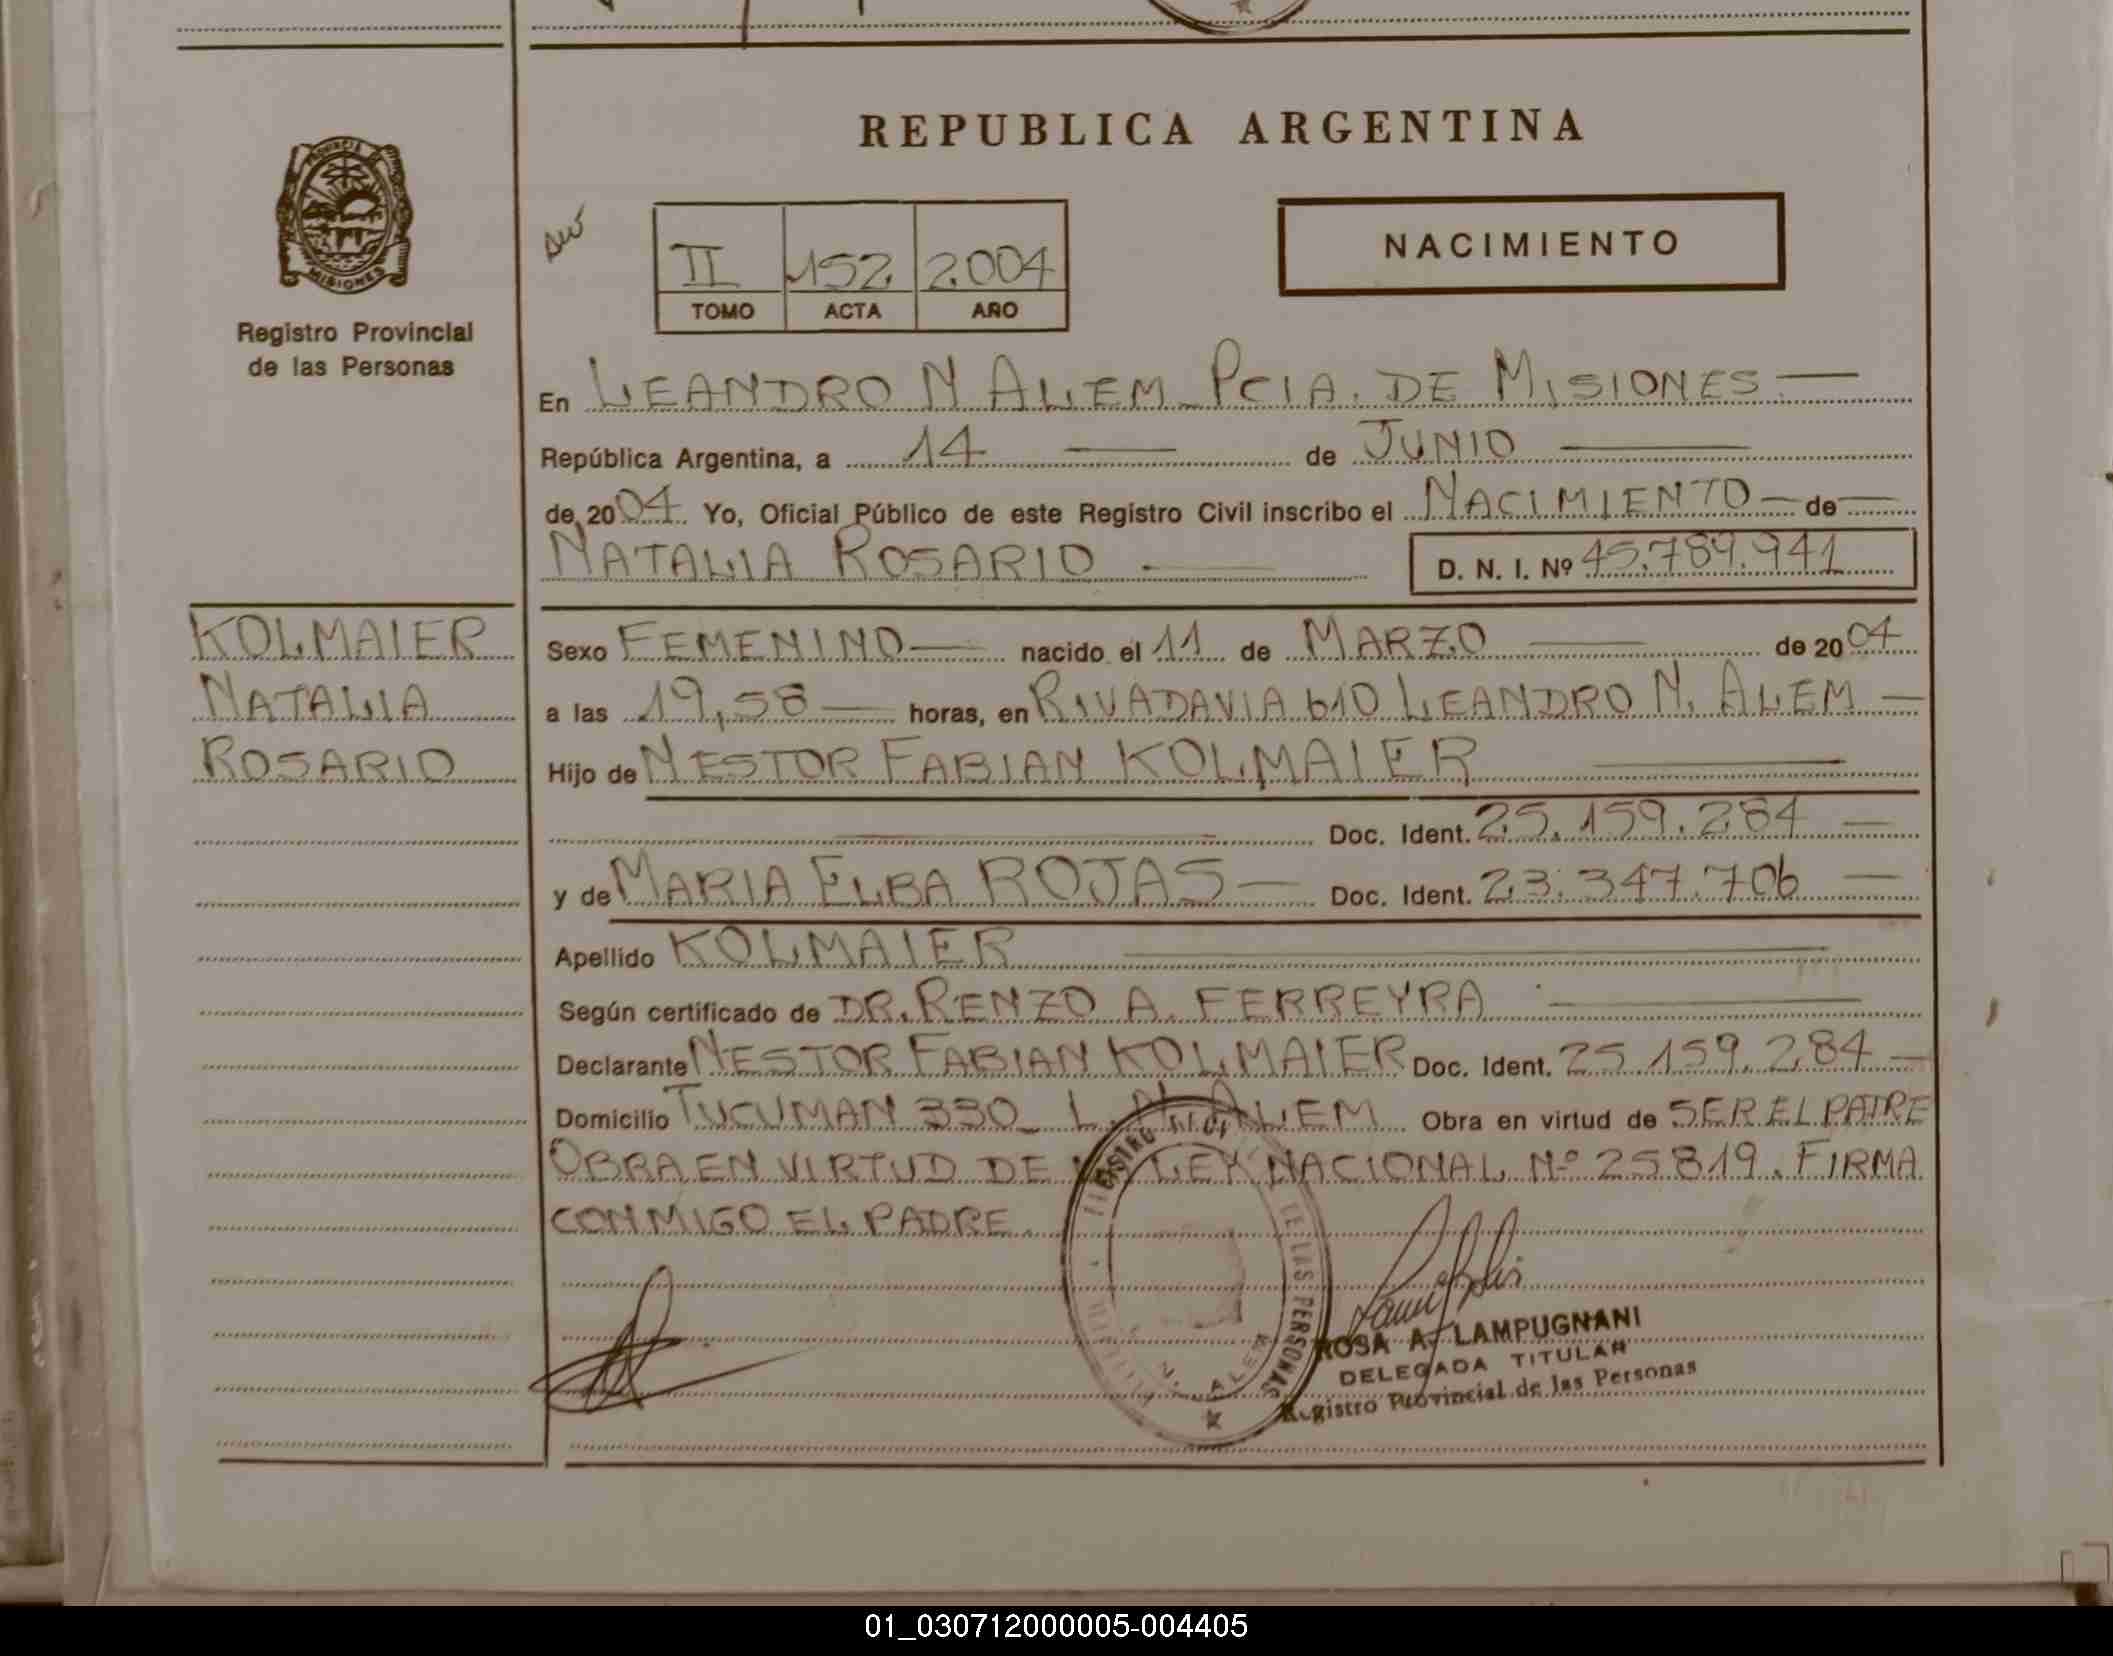 REPUBLICA ARGENTINA
PROVINCIA DE
MISIONES
Registro Provincial
de las Personas
II 152 2004
TOMO ACTA AÑO
NACIMIENTO
En LEANDRO N ALEM - PCIA. DE MISIONES —
República Argentina, a 14 — de JUNIO —
de 2004 Yo, Oficial Público de este Registro Civil inscribo el NACIMIENTO — de —
NATALIA ROSARIO — D. N. I. Nº 45.789.941
KOLMAIER
NATALIA
ROSARIO
Sexo FEMENINO — nacido el 11 de MARZO — de 2004
a las 19,58 — horas, en RIVADAVIA 610 LEANDRO N. ALEM —
Hijo de NESTOR FABIAN KOLMAIER —
— Doc. Ident. 25.159.284 —
y de MARIA ELBA ROJAS — Doc. Ident. 23.347.706 —
Apellido KOLMAIER —
Según certificado de DR. RENZO A. FERREYRA —
Declarante NESTOR FABIAN KOLMAIER Doc. Ident. 25.159.284 —
Domicilio TUCUMAN 330 - L. N. ALEM Obra en virtud de SER EL PATRE
OBRA EN VIRTUD DE LEY NACIONAL Nº 25.819. FIRMA
CONMIGO EL PADRE.
DE LAS PERSONAS
N. ALEM
ROSA A. LAMPUGNANI
DELEGADA TITULAR
Registro Provincial de las Personas
01_030712000005-004405